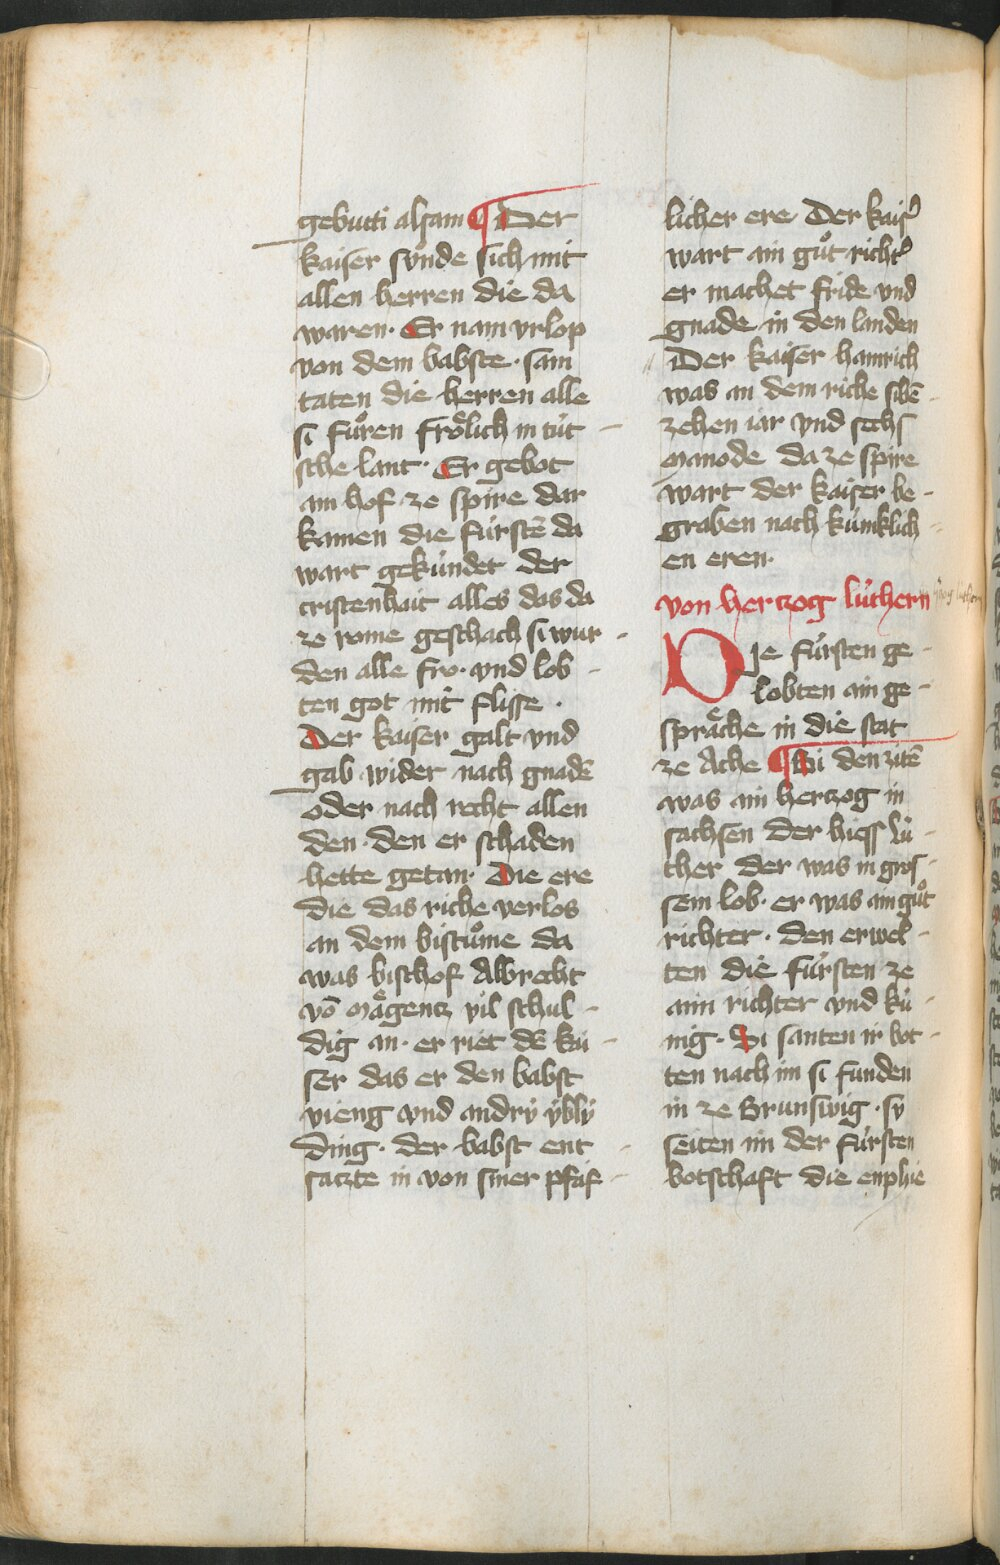 gebutti alsam ¶ Der
kaiser sv̊nde sich mit
allen herren die da
waren · Er nam vrlop
von dem babste · sam
taten die herren alle
si fůren froͤlich in tút -
sche lant · Er gebot
ain hof ze spire dar
kamen die fúrstē da
wart gekúndet der
cristenhait alles das da
ze rome geschach si wur -
den alle fro · vnd lob -
ten got mit flisse ·
Der kaiser galt vnd
gab wider nach gnadē
oder nach recht allen
den · den er schaden
hette getan · Die ere
die das riche verlos
an dem bistůme da
was bischof Albrecht
vō Maͤgencz vil schul -
dig an · er riet dē kai
ser das er den babst
vieng vnd andrú v́blú
ding · der babst ent -
saczte in von siner pfaf -
licher ere Der kais᾽
wart ain gůt richt᾽
er machet fride vnd
gnade in den landen
Der kaiser hainrich
was an dem riche sibē -
zehen iar vnd sechs
manode da ze spire
wart der kaiser be -
graben nach kúniklich -
en eren ·
von herczog lúthern
Die fúrsten ge -
lobten ain ge -
spraͤche in die stat
ze Ache ¶ Bi den zitē
was ain herczog in
sachsen der hiess lú -
ther der was in gros -
sem lob · er was ain gůt
richter · den erwel -
ten die fúrsten ze
aim richter vnd kú -
nig · Si santen ir bot -
ten nach im si funden
in ze Brunswig · sy
seiten im der fúrsten
botschaft die enphie